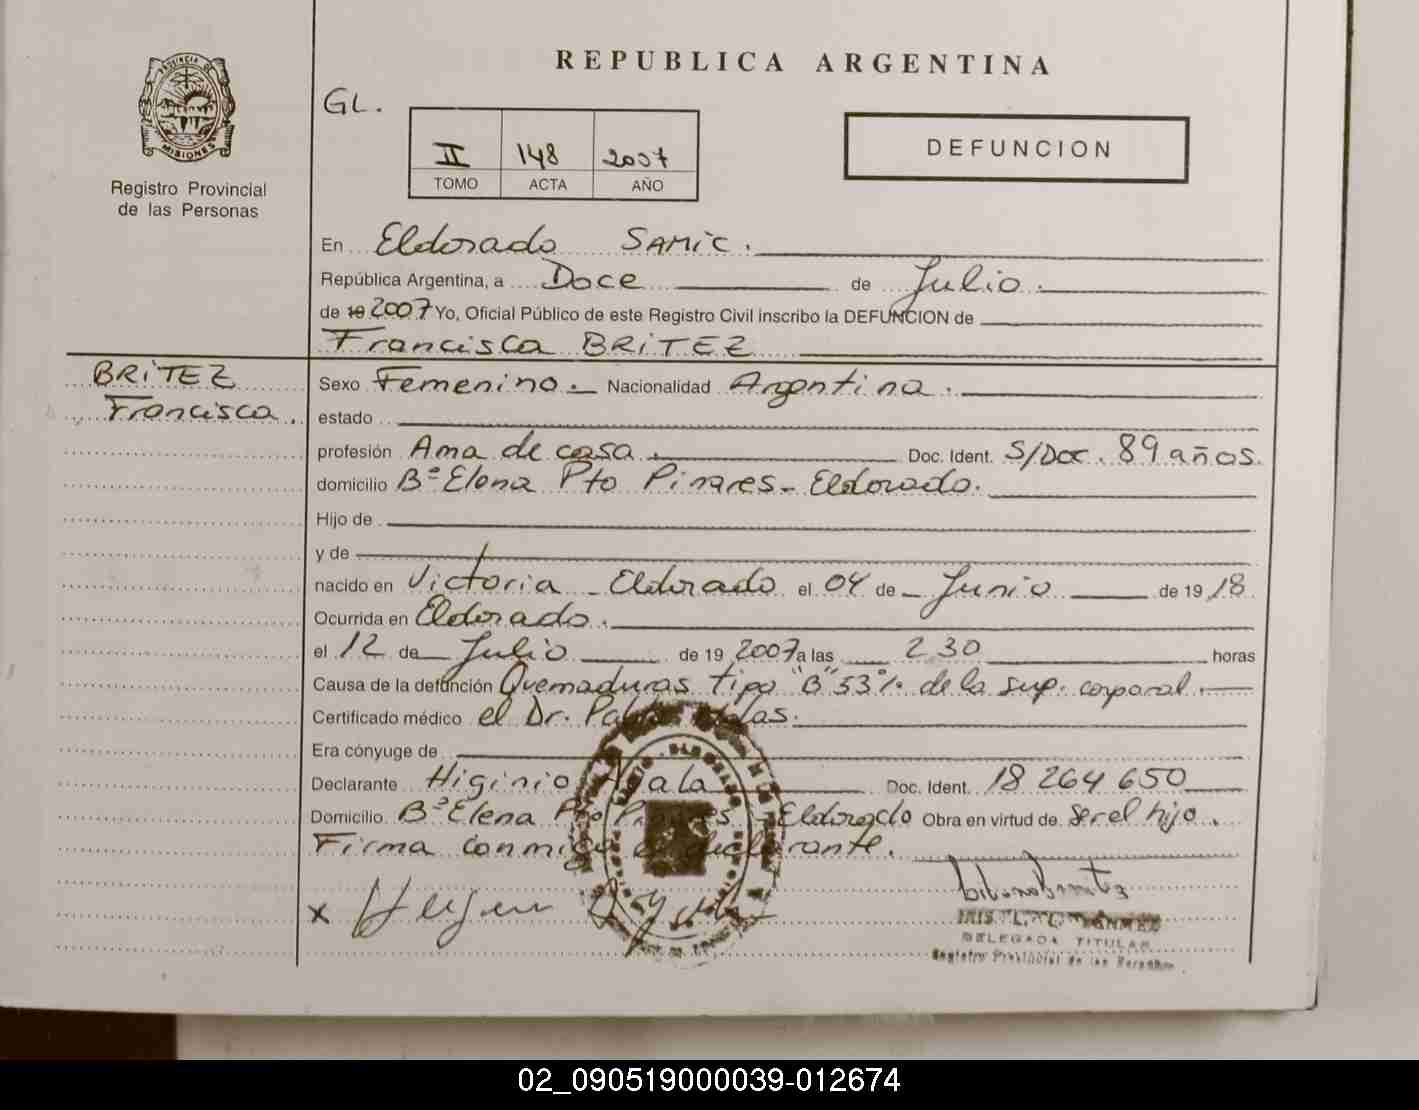 REPUBLICA ARGENTINA
PROVINCIA DE
MISIONES
Registro Provincial
de las Personas
GL.
II 148 2007
TOMO ACTA AÑO
DEFUNCION
En Eldorado SAMIC.
República Argentina, a Doce de Julio.
de 19 2007 Yo, Oficial Público de este Registro Civil inscribo la DEFUNCION de
Francisca BRITEZ
BRITEZ
Francisca.
Sexo Femenino. Nacionalidad Argentina.
estado
profesión Ama de casa. Doc. Ident. S/Doc. 89 años.
domicilio Bº Elena Pto Pinares - Eldorado.
Hijo de
y de
nacido en Victoria - Eldorado el 04 de Junio de 19 18
Ocurrida en Eldorado.
el 12 de Julio de 19 2007 a las 2 30 horas
Causa de la defunción Quemaduras tipo "B" 53% de la sup. corporal.
Certificado médico el Dr.
Era cónyuge de
Declarante Higinio Doc. Ident. 18 264 650
Domicilio Bº Elena Pto Pinares - Eldorado Obra en virtud de ser el hijo.
Firma conmigo el declarante.
x
DELEGADA TITULAR
Registro Provincial de las Personas
02_090519000039-012674